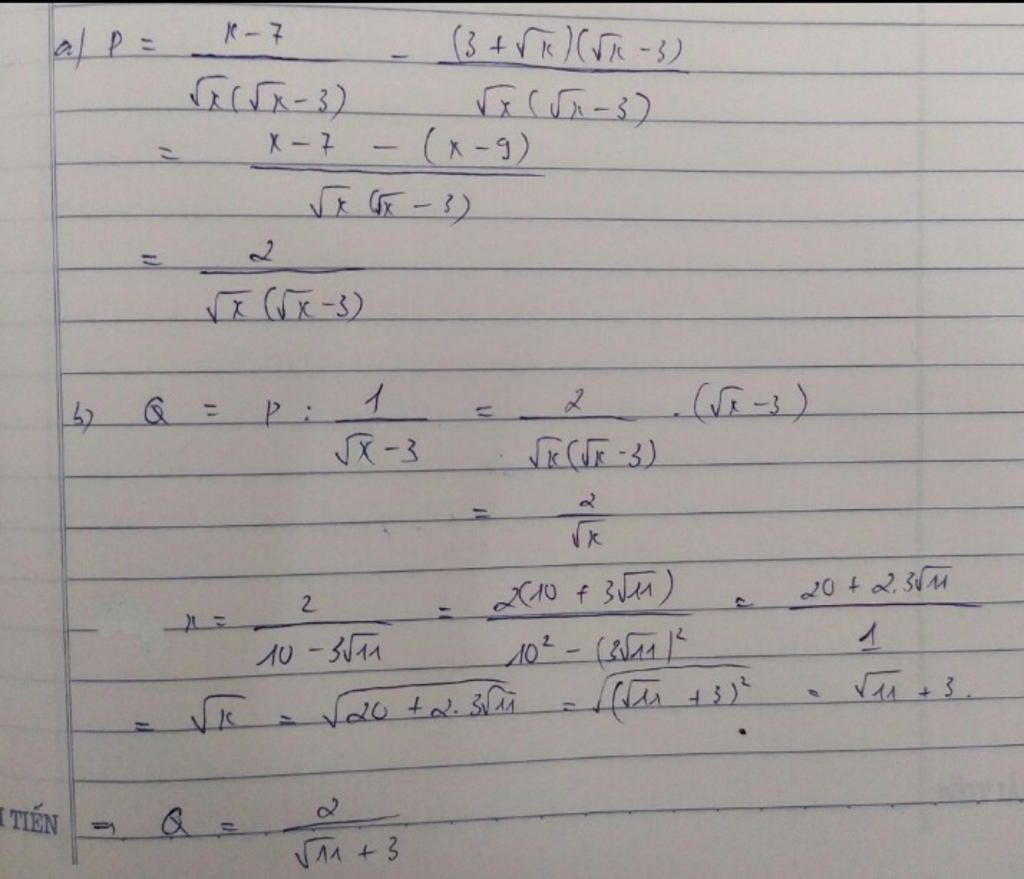 a) P = \frac{x-7}{\sqrt{x}(\sqrt{x}-3)} - \frac{(3+\sqrt{x})(\sqrt{x}-3)}{\sqrt{x}(\sqrt{x}-3)}
= \frac{x-7-(x-9)}{\sqrt{x}(\sqrt{x}-3)}
= \frac{2}{\sqrt{x}(\sqrt{x}-3)}
b) Q = P : \frac{1}{\sqrt{x}-3} = \frac{2}{\sqrt{x}(\sqrt{x}-3)} . (\sqrt{x}-3)
= \frac{2}{\sqrt{x}}
x = \frac{2}{10-3\sqrt{11}} = \frac{2(10+3\sqrt{11})}{10^2-(3\sqrt{11})^2} = \frac{20+2.3\sqrt{11}}{1}
= \sqrt{x} = \sqrt{20+2.3\sqrt{11}} = \sqrt{(\sqrt{11}+3)^2} = \sqrt{11}+3.
TIẾN ⇒ Q = \frac{2}{\sqrt{11}+3}